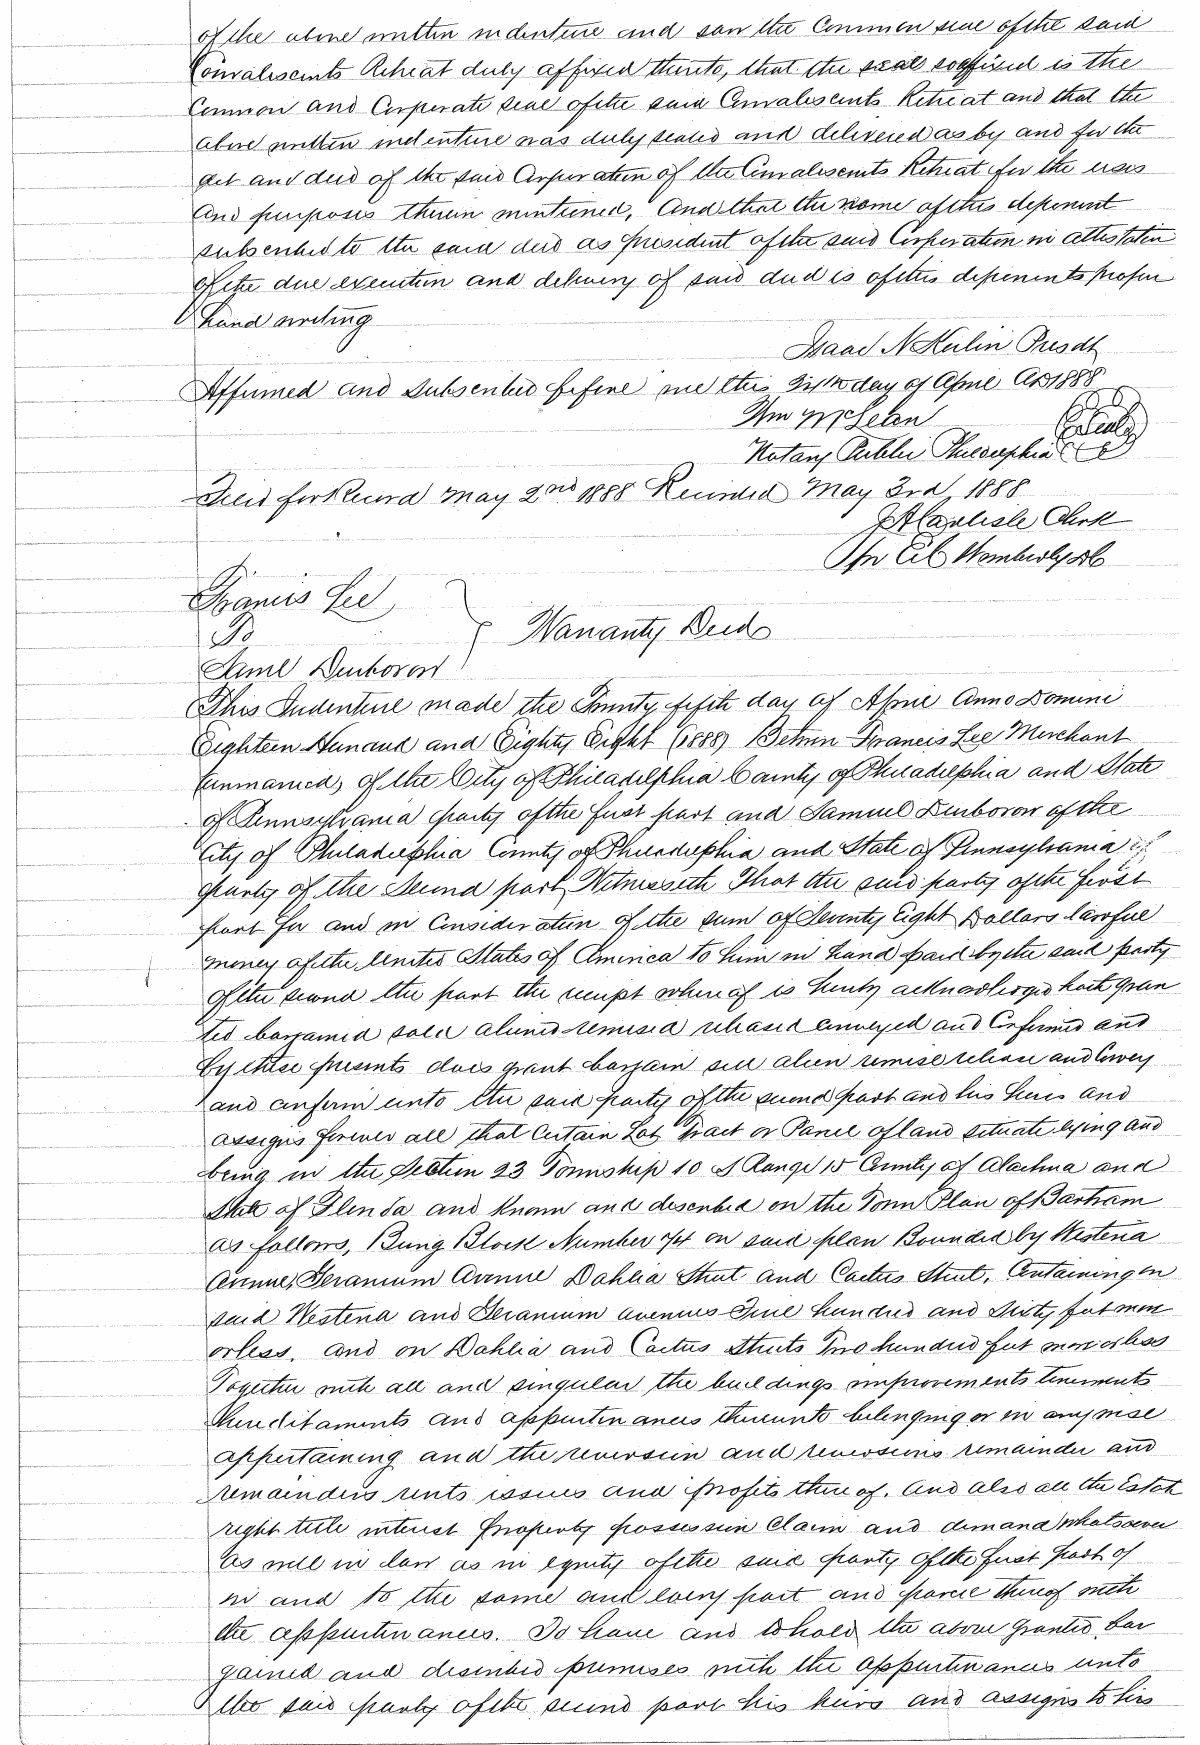 of the above written indenture and saw the Common seal of the said
Convalescents Retreat duly affixed thereto, that the seal so affixed is the
Common and Corporate seal of the said Convalescents Retreat and that the
above written indenture was duly sealed and delivered as by and for the
act and deed of the said Corporation of the Convalescents Retreat for the uses
and purposes therein mentioned, And that the name of this deponent
subscribed to the said deed as president of the said Corporation in attestation
of the due execution and delivery of said deed is of this deponents proper
hand writing
Isaac N Kerlin Presdt
Affirmed and Subscribed before me this day of April AD 1888
Wm
Notary Public Philadelphia Seal
Filed for Record May 2nd 1888 Recorded May 3rd 1888
J A Carlisle Clerk
Pr Wimberly DC
Francis Lee
To
Warranty Deed
Saml Durborow
This Indenture made the Twenty fifth day of April Anno Domini
Eighteen Hundred and Eighty Eight (1888) Between Francis Lee Merchant
(unmarried) of the City of Philadelphia County of Philadelphia and State
of Pennsylvania party of the first part and Samuel Durborow of the
City of Philadelphia County of Philadelphia and State of Pennsylvania of
party of the Second part Witnesseth That the said party of the first
part for and in Consideration of the sum of Seventy Eight Dollars lawful
money of the United States of America to him in hand paid by the said party
of the second the part the receipt whereof is hereby acknowledged hath gran
ted bargained sold aliened remised released conveyed and Confirmed and
by these presents does grant bargain sell alien remise release and Convey
and confirm unto the said party of the second part and his heirs and
assigns forever all that Certain Lot Tract or Parcel of land situate lying and
being in the Section 23 Township 10 S Range 18 County of Alachua and
State of Florida and known and described on the Town Plan of Bartram
as follows, Being Block Number 74 on said plan Bounded by Westeria
Avenue, Geranium Avenue Dahlia Street and Cactus Street, Containing on
said Westeria and Geranium avenues Five hundred and Sixty feet more
or less, and on Dahlia and Cactus Streets Two hundred feet more or less
Together with all and singular the buildings improvements tenements
hereditaments and appurtenances thereunto belonging or in anywise
appertaining and the reversion and reversions remainder and
remainders rents issues and profits thereof. And also all the Estate
right title interest property possession Claim and demand whatsoever
as well in law as in equity of the said party of the first part of
in and to the same and every part and parcel thereof with
the appurtenances. To have and to hold the above granted bar
gained and described premises with the appurtenances unto
the said party of the second part his heirs and assigns to his